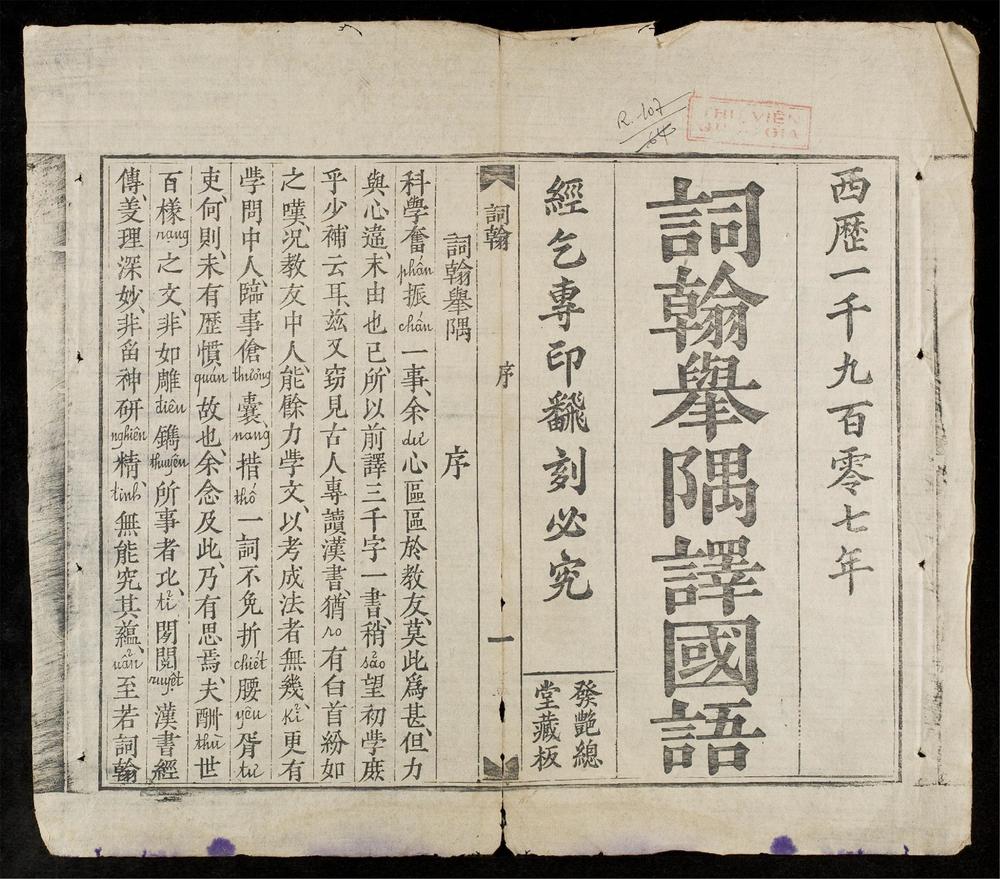 R.107
64
THƯ VIỆN
QUỐC GIA
西歷一千九百零七年
詞翰舉隅譯國語
經乞專印飜刻必究
發艷總
堂藏板
詞翰 序 一
詞翰舉隅 序
科學奮phấn振chấn一事、余dư心區區於教友、莫此爲甚、但力
與心違、末由也已、所以前譯三千字一書、稍sảo望初學庶
乎少補云耳、兹又窃見古人專讀漢書、猶ro有白首紛如
之嘆、况教友中人、能餘力學文、以考成法者無幾kỉ、更有
學問中人、臨事傖thưởng囊nang、措thố一詞不免折chiết腰yêu胥tư
吏、何則、未有歴慣quán故也、余念及此、乃有思焉、夫酬thù世
百樣rạng之文、非如雕điêu鐫thuyên所事者比tỉ、閱duyệt漢書經
傳、羙理深妙、非畄神研nghiên精tinh、無能究其蘊uẩn、至若詞翰